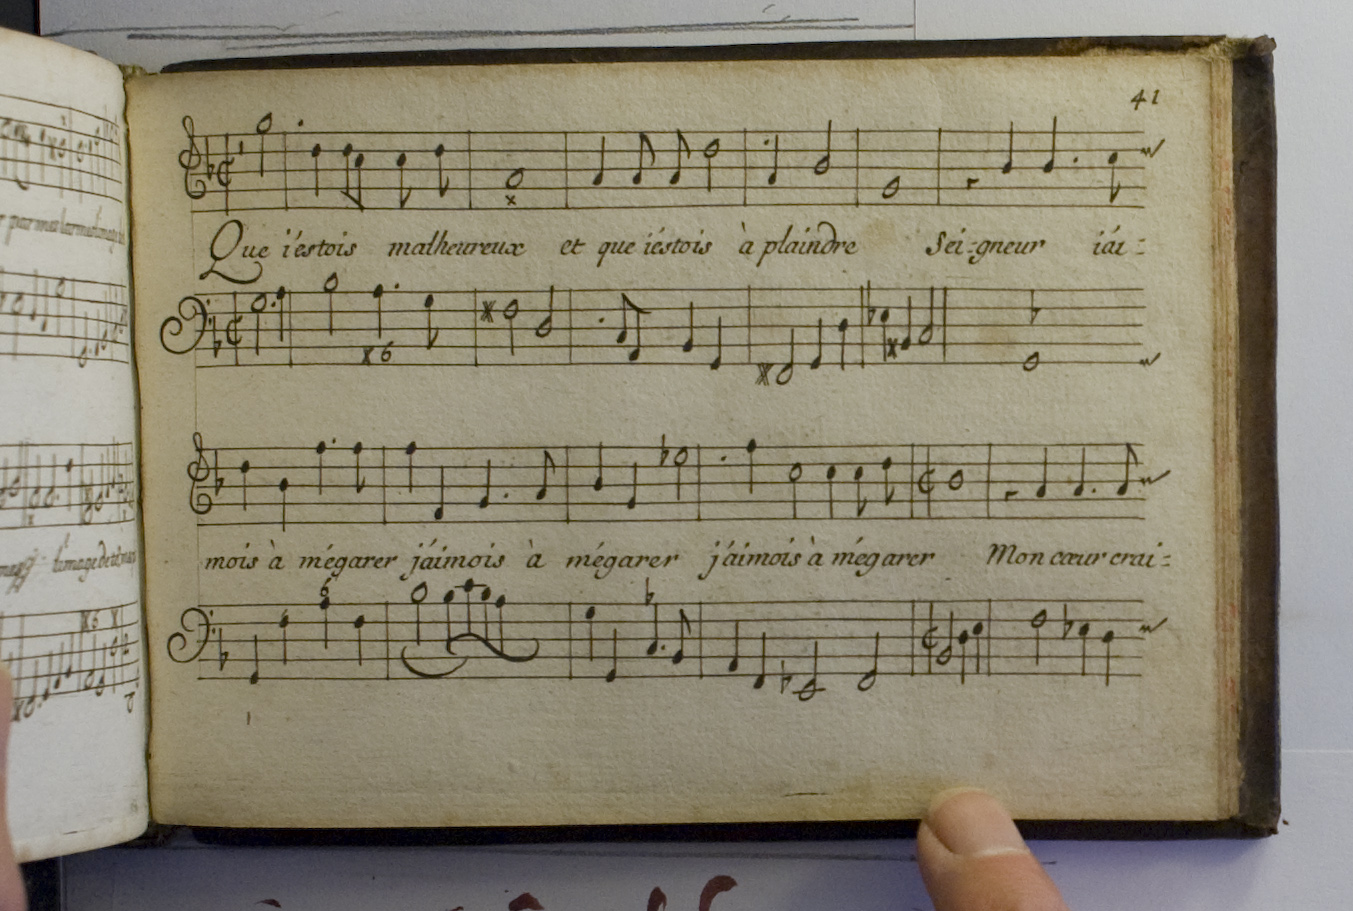 41
Que i'éstois malheureux et que iéstois à plaindre Sei-gneur iái-
x 6
mois à mégarer j'áimois à mégarer j'áimois à mégarer Mon cœur crai-
6